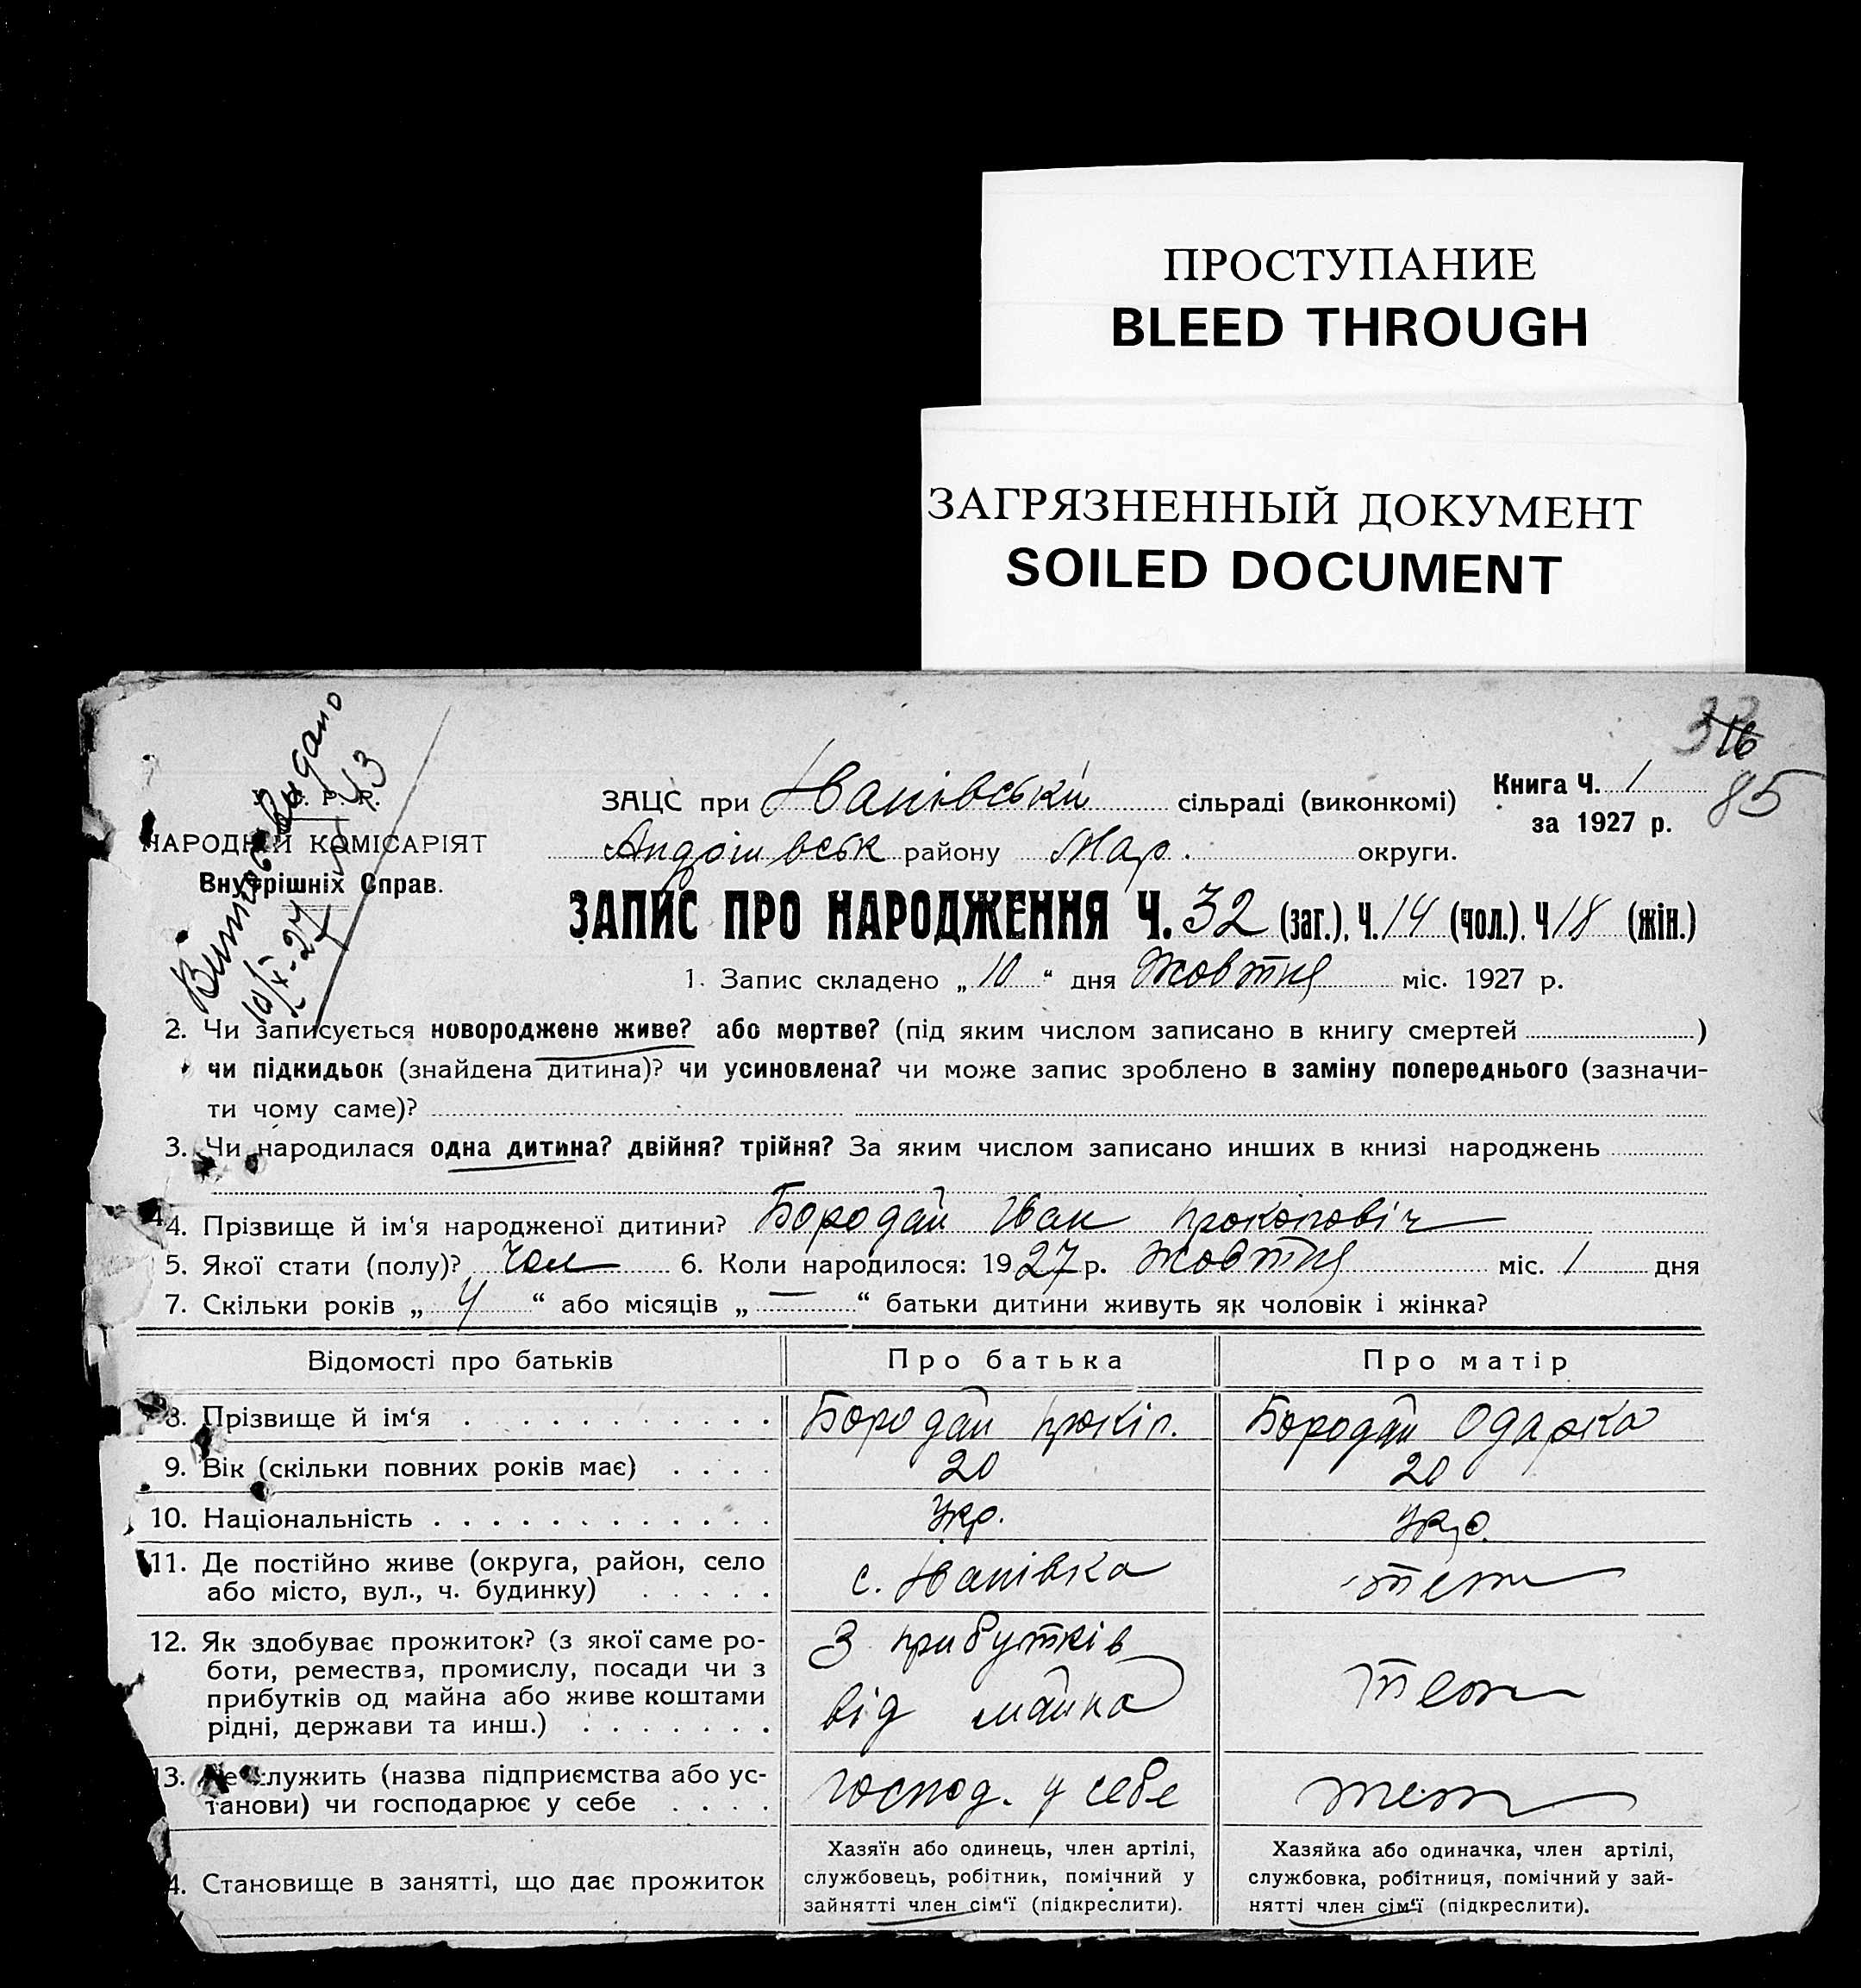 ПРОСТУПАНИЕ
BLEED THROUGH
ЗАГРЯЗНЕННЫЙ ДОКУМЕНТ
SOILED DOCUMENT
85
Р.
НАРОДНІЙ КОМІСАРІЯТ
Внутрішніх Справ.
видано
ЗАЦС при Іванівській сільраді (виконкомі)
Книга Ч. 1
за 1927 р.
району Мар. округи.
ЗАПИС ПРО НАРОДЖЕННЯ Ч. 32 (заг.), Ч. 14 (чол.), Ч 18 (жін.)
1. Запис складено „ 10 “ дня Жовтня міс. 1927 р.
2. Чи записується новороджене живе? або мертве? (під яким числом записано в книгу смертей )
чи підкидьок (знайдена дитина)? чи усиновлена? чи може запис зроблено в заміну попереднього (зазначи-
ти чому саме)?
3. Чи народилася одна дитина? двійня? трійня? За яким числом записано инших в книзі народжень
4. Прізвище й ім‘я народженої дитини? Бородай Іван Прокопович
5. Якої стати (полу)? Чол 6. Коли народилося: 1927 р. Жовтня міс. 1 дня
7. Скільки років „ 4 “ або місяців „ — “ батьки дитини живуть як чоловік і жінка?
Відомості про батьків Про батька Про матір
8. Прізвище й ім‘я Бородай Прокіп. Бородай Одарка
9. Вік (скільки повних років має) 20 20
10. Національність Укр. Укр.
11. Де постійно живе (округа, район, село
або місто, вул., ч. будинку)
с. Іванівка теж
12. Як здобуває прожиток? (з якої саме ро-
боти, ремества, промислу, посади чи з
прибутків од майна або живе коштами
рідні, держави та инш.)
З прибутків
від майна
теж
13. Де служить (назва підприємства або ус-
танови) чи господарює у себе
господ. у себе теж
4. Становище в занятті, що дає прожиток
Хазяїн або одинець, член артілі,
службовець, робітник, помічний у
зайнятті член сім‘ї (підкреслити).
Хазяйка або одиначка, член артілі,
службовка, робітниця, помічний у зай-
нятті член сім‘ї (підкреслити).